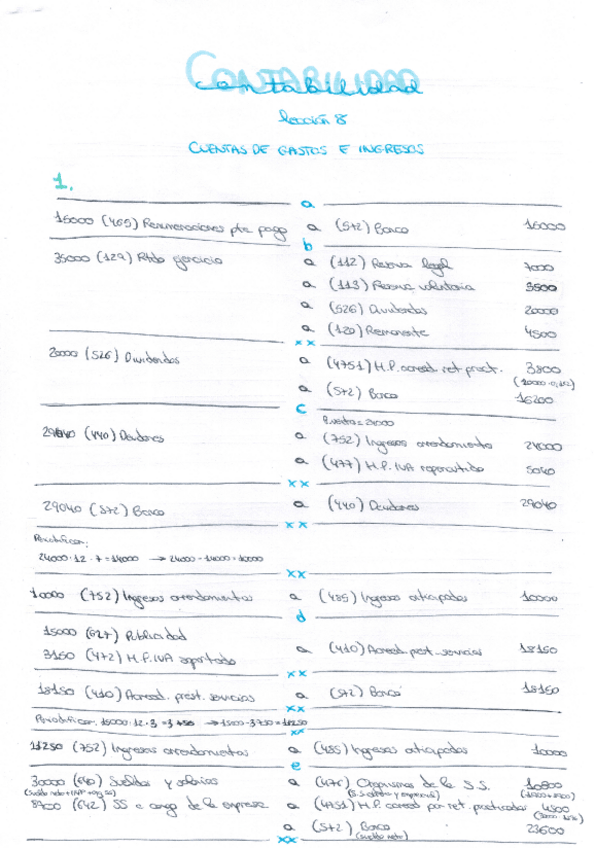 CONTABILIDAD
contabilidad
lección 8
CUENTAS DE GASTOS E INGRESOS
1.
a
15000 (465) Remuneraciones pte. pago a (572) Banco 15000
b
35000 (129) Rtdo ejercicio a (112) Reserva legal 7000
a (113) Reserva voluntaria 3500
a (526) Dividendos 20000
a (120) Remanente 4500
xx
20000 (526) Dividendos a (4751) H.P. acreed. ret. pract. 3800
(20000·0,19)
a (572) Banco 16200
c
29040 (440) Deudores a (752) Ingresos arrendamiento 24000
a (477) H.P. IVA repercutido 5040
xx
29040 (572) Banco a (440) Deudores 29040
xx
Periodificar:
24000:12·7=14000 → 24000-14000=10000
xx
10000 (752) Ingresos arrendamientos a (485) Ingresos anticipados 10000
d
15000 (627) Publicidad
3150 (472) H.P. IVA soportado a (410) Acreed. prest. servicios 18150
xx
18150 (410) Acreed. prest. servicios a (572) Banco 18150
xx
Periodificar: 15000:12·3=3750 → 15000-3750=11250
xx
11250 (752) Ingresos arrendamientos a (485) Ingresos anticipados 10000
e
30000 (640) Sueldos y salarios a (476) Organismos de la S.S. 10800
8900 (642) SS a cargo de la empresa a (4751) H.P. acreed por ret. practicadas 4500
a (572) Banco 23600
(sueldo neto)
xx